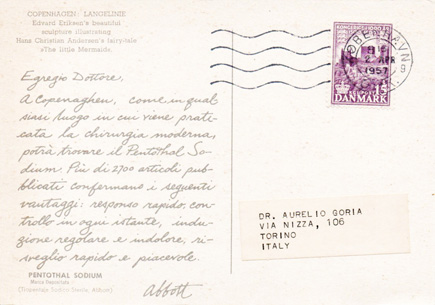 COPENHAGEN: LANGELINIE
Edvard Eriksen's beautiful
sculpture illustrating
Hans Christian Andersen's fairy-tale
»The little Mermaid«
KØBENHAVN
2. APR
1957
DANMARK
15
Egregio Dottore,
A Copenaghen, come in qual
siasi luogo in cui viene prati-
cata la chirurgia moderna,
potrà trovare il Pentothal So-
dium. Più di 2700 articoli pub-
blicati confermano i seguenti
vantaggi: responso rapido, con-
trollo in ogni istante, indu-
zione regolare e indolore, ri-
sveglio rapido e piacevole.
PENTOTHAL SODIUM
Marca Depositata
Abbott
DR. AURELIO GORIA
VIA NIZZA, 106
TORINO
ITALY